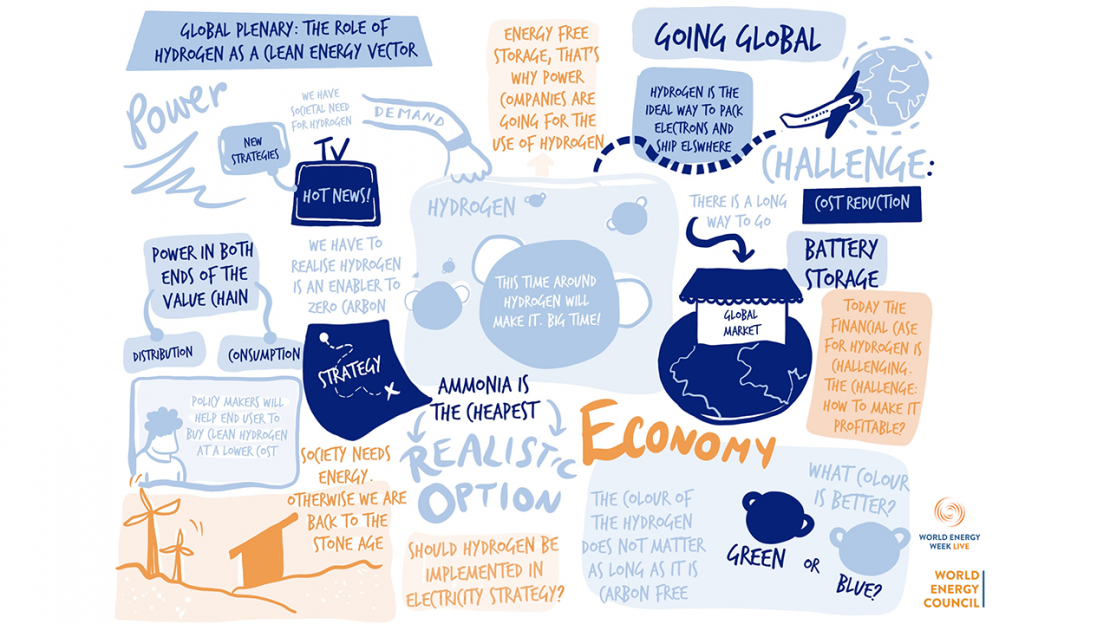 GLOBAL PLENARY: THE ROLE OF
HYDROGEN AS A CLEAN ENERGY VECTOR
Power
NEW
STRATEGIES
WE HAVE
SOCIETAL NEED
FOR HYDROGEN
DEMAND
TV
HOT NEWS!
ENERGY FREE
STORAGE, THAT'S
WHY POWER
COMPANIES ARE
GOING FOR THE
USE OF HYDROGEN
GOING GLOBAL
HYDROGEN IS THE
IDEAL WAY TO PACK
ELECTRONS AND
SHIP ELSWHERE
CHALLENGE:
COST REDUCTION
THERE IS A LONG
WAY TO GO
BATTERY
STORAGE
GLOBAL
MARKET
TODAY THE
FINANCIAL CASE
FOR HYDROGEN IS
CHALLENGING.
THE CHALLENGE:
HOW TO MAKE IT
PROFITABLE?
HYDROGEN
THIS TIME AROUND
HYDROGEN WILL
MAKE IT. BIG TIME!
POWER IN BOTH
ENDS OF THE
VALUE CHAIN
DISTRIBUTION
CONSUMPTION
WE HAVE TO
REALISE HYDROGEN
IS AN ENABLER TO
ZERO CARBON
STRATEGY
X
POLICY MAKERS WILL
HELP END USER TO
BUY CLEAN HYDROGEN
AT A LOWER COST
SOCIETY NEEDS
ENERGY.
OTHERWISE WE ARE
BACK TO THE
STONE AGE
AMMONIA IS
THE CHEAPEST
REALISTIC
OPTION
SHOULD HYDROGEN BE
IMPLEMENTED IN
ELECTRICITY STRATEGY?
ECONOMY
THE COLOUR OF
THE HYDROGEN
DOES NOT MATTER
AS LONG AS IT IS
CARBON FREE
WHAT COLOUR
IS BETTER?
GREEN OR
BLUE?
WORLD ENERGY
WEEK LIVE
WORLD
ENERGY
COUNCIL